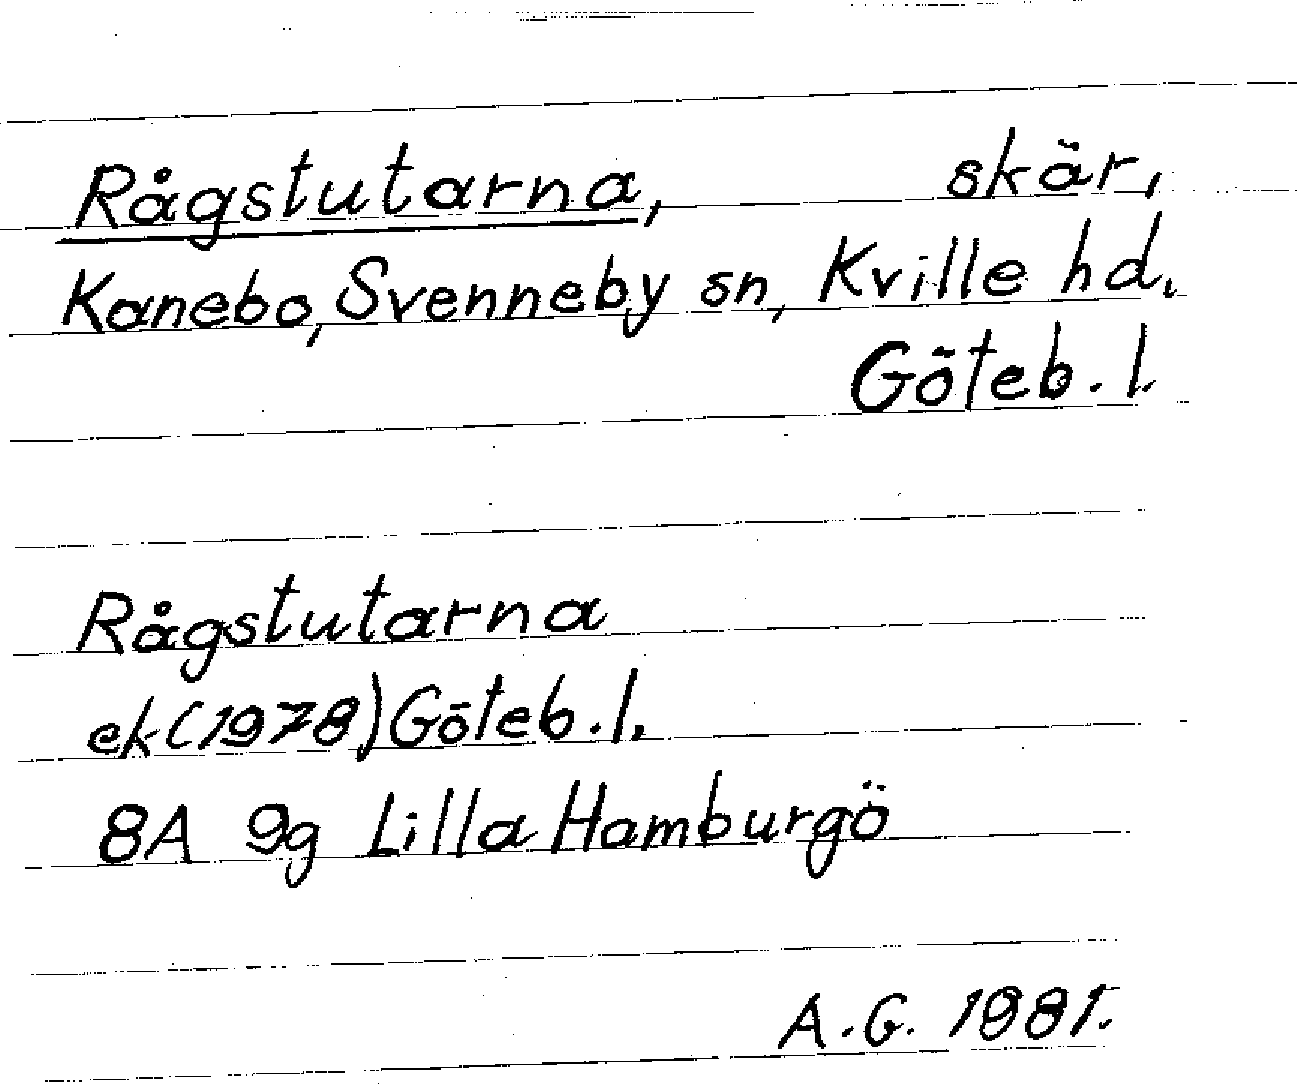 Rågstutarna, skär,
Kanebo, Svenneby sn, Kville hd.
Göteb. l.
Rågstutarna
ek (1978) Göteb. l.
8A 9g Lilla Hamburgö
A.G. 1981.